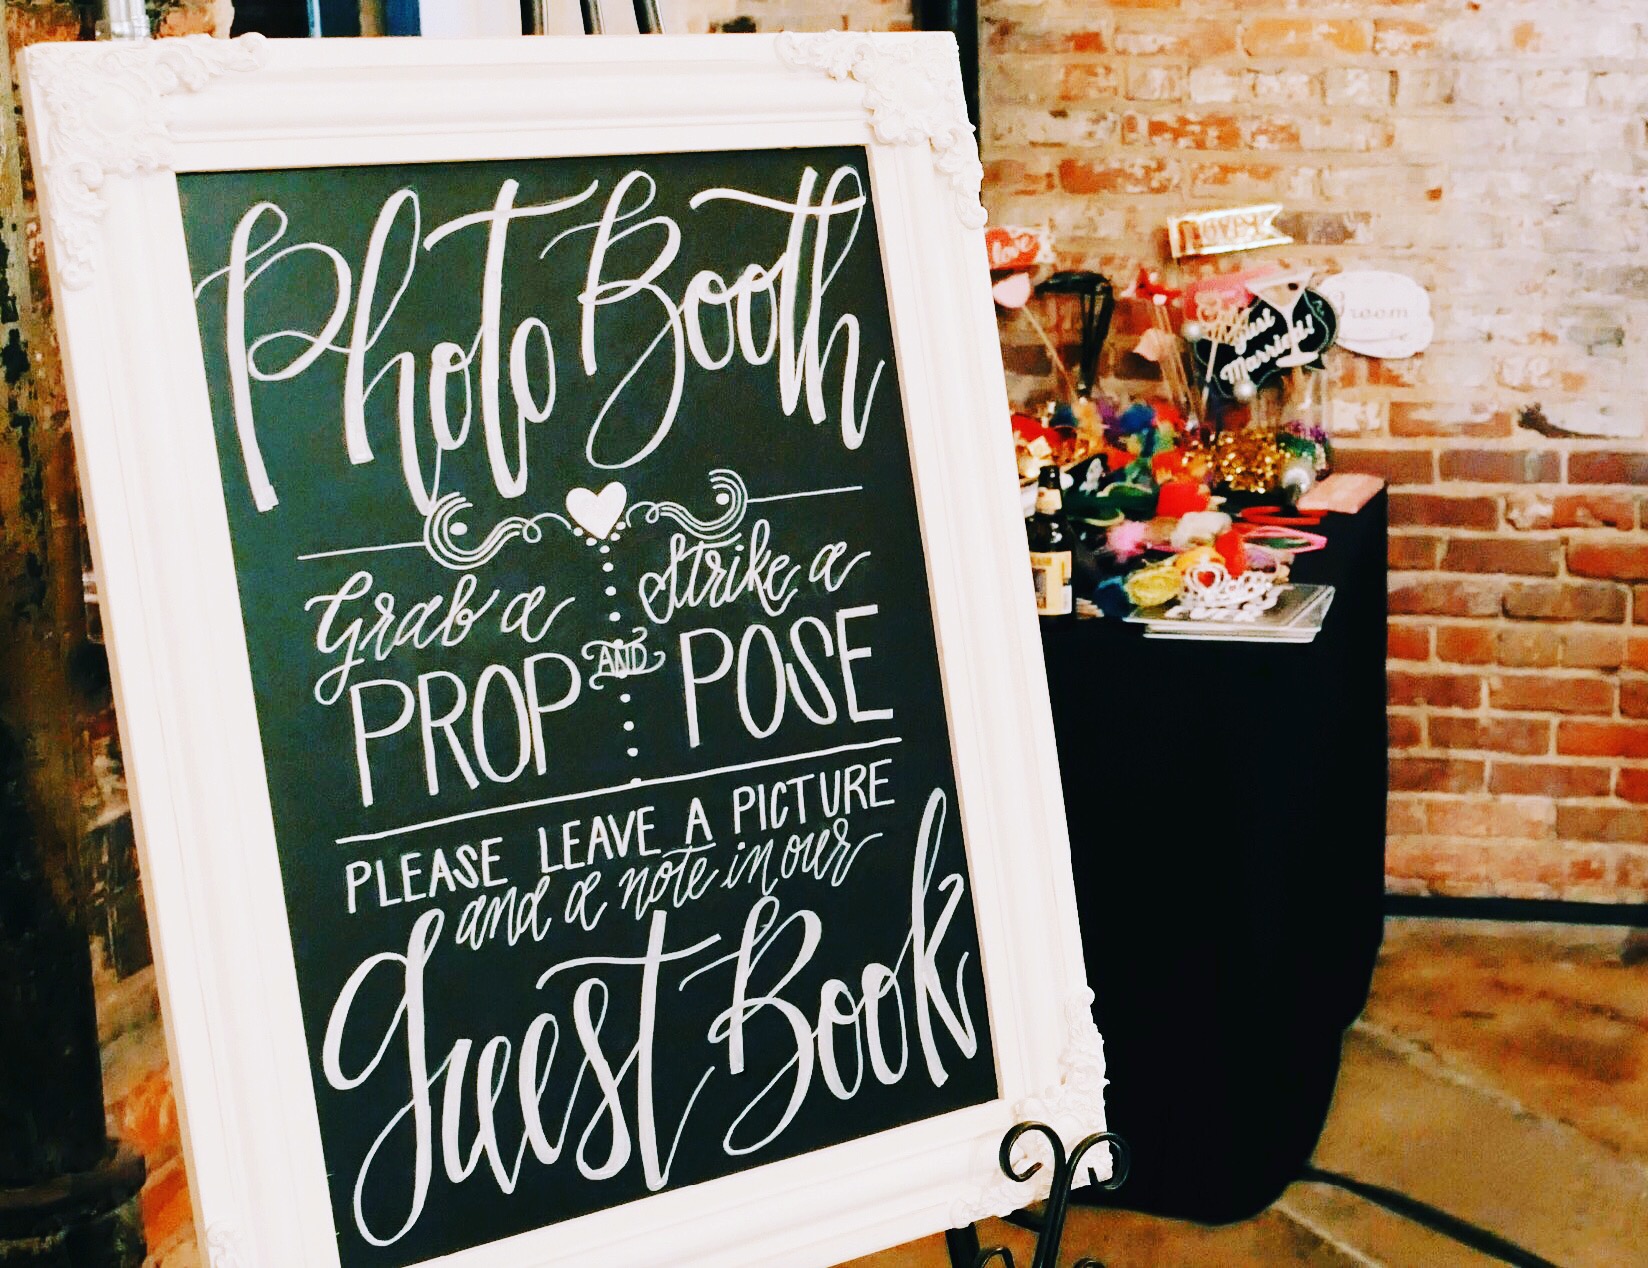 Photo Booth
Grab a
PROP
AND
Strike a
POSE
PLEASE LEAVE A PICTURE
and a note in our
Guest Book
Just
Married!
Groom